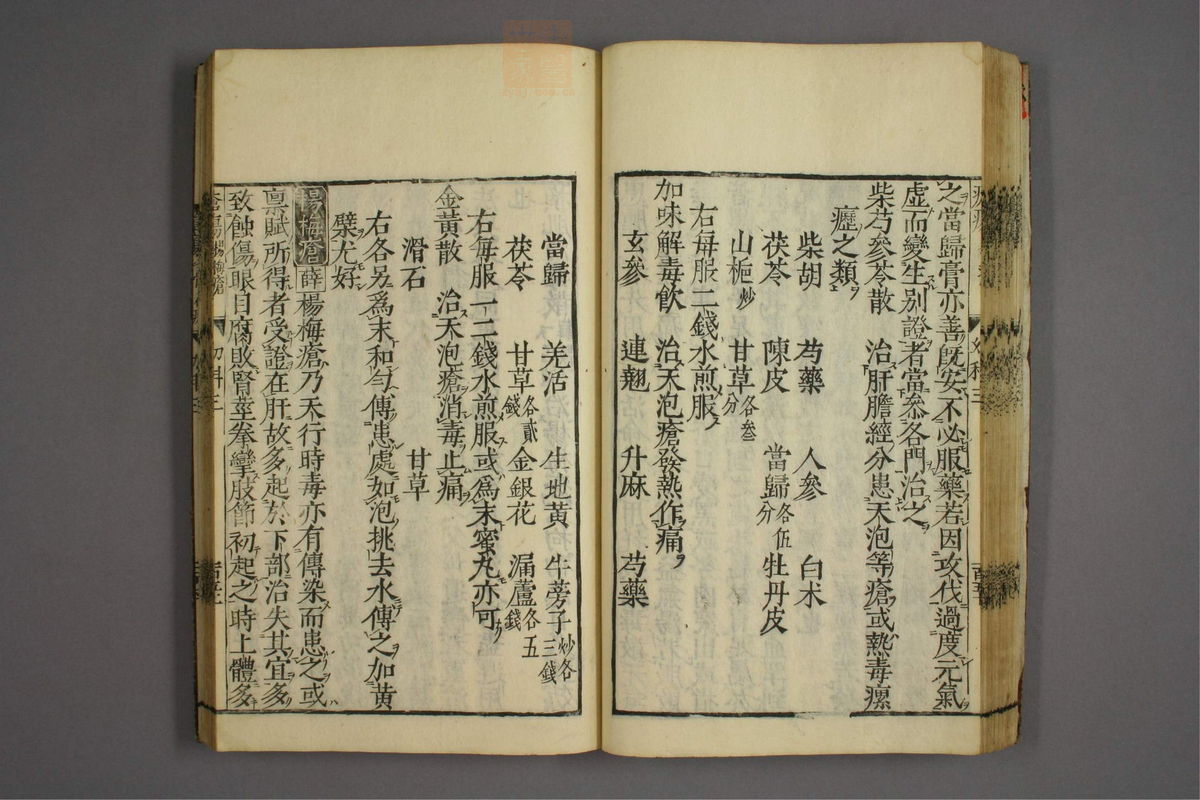 之當歸膏亦善既安不必服藥若因攻伐過度元氣
虛而變生别證者當叅各門治之
柴芍參苓散　治肝膽經分患天泡等瘡或熱毒瘰
癧之類
柴胡　芍藥　人參　白术
茯苓　陳皮　當歸各伍分　牡丹皮
山梔炒　甘草各叁分
右每服二錢水煎服
加味解毒飲　治天泡瘡發熱作痛
玄參　連翹　升麻　芍藥
當歸　羗活　生地黄　牛蒡子炒各三錢
茯苓　甘草各貳錢　金銀花　漏蘆各五錢
右每服一二錢水煎服或爲末蜜丸亦可
金黃散　治天泡瘡消毒止痛
滑石　甘草
右各另爲末和勻傅患處如泡挑去水傅之加黄
檗尤好
楊梅瘡　薛　楊梅瘡乃天行時毒亦有傳染而患之或
禀賦所得者受證在肝故多起於下部治失其宜多
致蝕傷眼目腐敗腎莖拳攣肢節初起之時上體多
瘡瘍　楊梅瘡